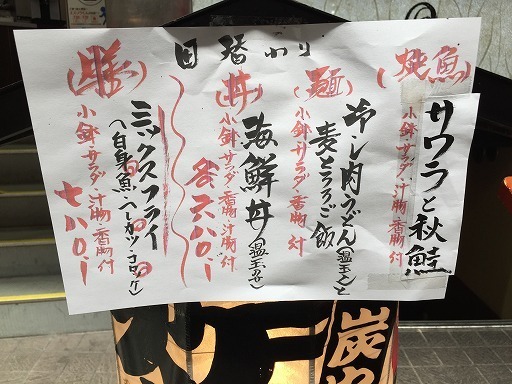 日替わり
(焼魚)
サワラと秋鮭
小鉢・サラダ・汁物・香物付
(麺)
冷し肉うどん(温玉)と
麦とろろご飯
小鉢・サラダ・香物付
(丼)
海鮮丼(温玉のせ)
小鉢・サラダ・香物・汁物付
各六八〇.-
(膳)
ミックスフライ
(白身魚・ヘレカツ・コロッケ)
小鉢・サラダ・汁物・香物付
七八〇.-
炭や